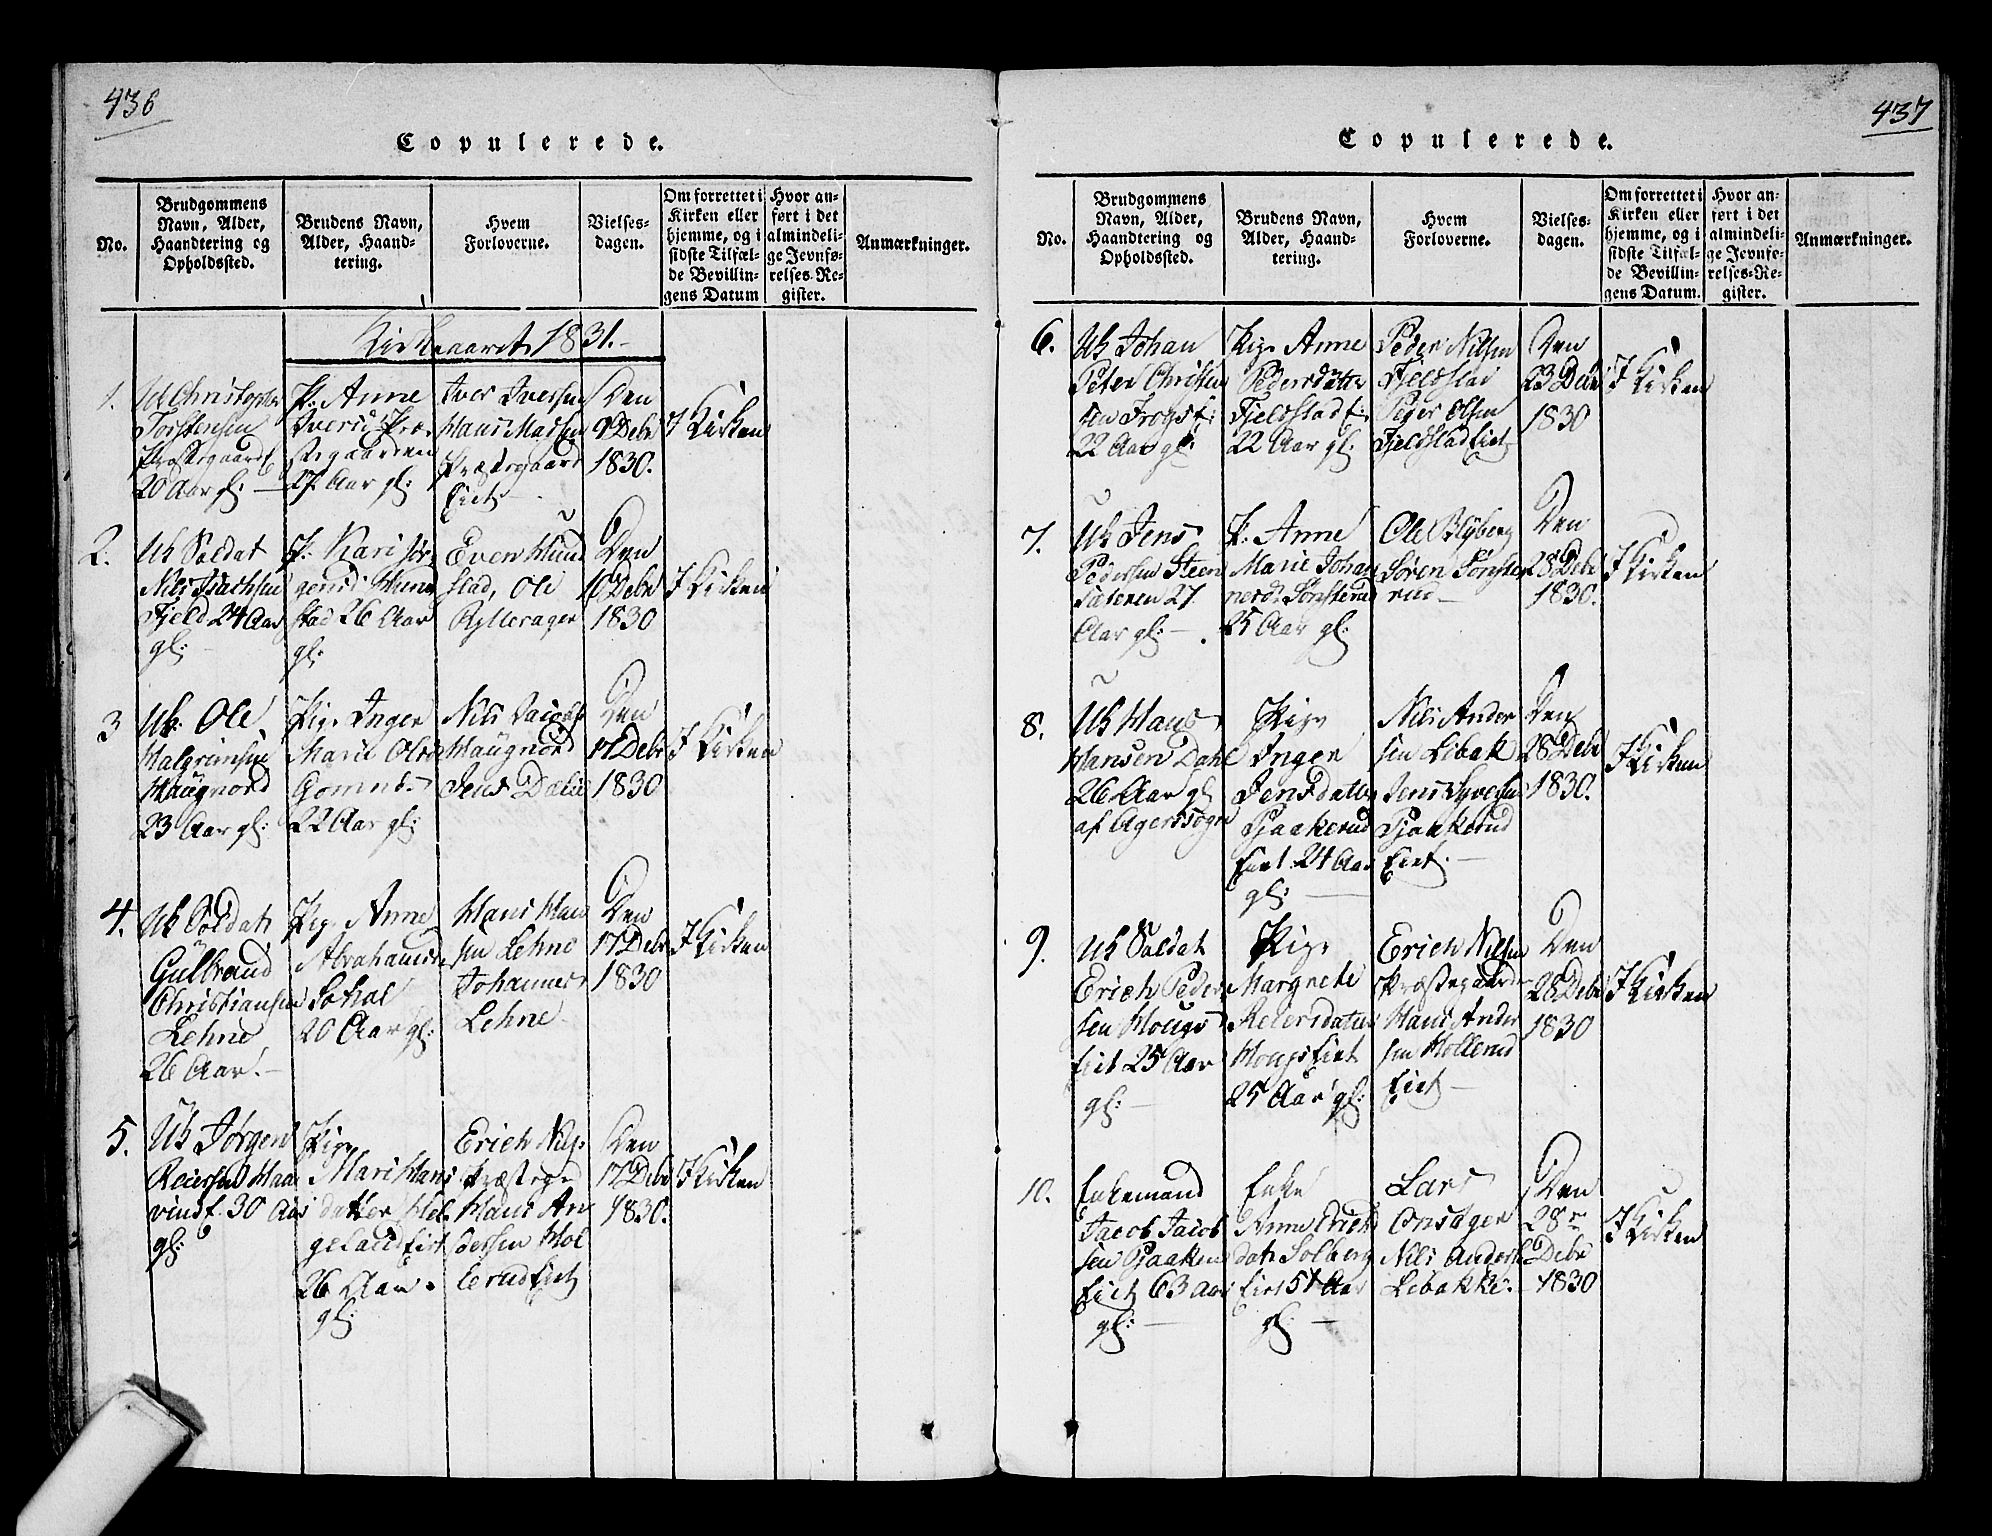 436
Copulerede.
No.
Brudgommens
Navn, Alder,
Haandtering og
Opholdssted.
Brudens Navn,
Alder, Haand-
tering.
Hvem
Forloverne.
Vielses-
dagen.
Om forrettet i
Kirken eller
hjemme, og i
sidste Tilfæl-
de Bevillin-
gens Datum
Hvor an-
ført i det
almindeli-
ge Jevnfø-
relses-Re-
gister.
Anmærkninger.
Kirkeaaret 1831.
1.
Uk Christopher
Torstensen
20 Aar gl:
P. Anne
Iversd Præ-
stegaarden
27 Aar gl:
Iver Iversen
Hans Madsen
Præstegaard
Eiet
Den
9 Debr
1830.
I Kirken
2.
Uk Soldat
Nils Isachsen
Fjeld 24 Aar
gl:
P. Kari Jør-
gensd
stad 26 Aar
gl:
Even
stad, Ole
Rytterager
Den
10 Debr
1830
I Kirken
3
Uk. Ole
Halgrimsen
Haugnord
23 Aar gl:
Pige Inger
Marie Olsd
22 Aar gl:
Nils
Haugnord
Jens Dælie
Den
17 Debr
1830
I Kirken
4.
Uk Soldat
Gulbrand
Christiansen
Lehne
26 Aar.
Pige Anne
Abrahamsd
20 Aar gl:
Hans Han
sen Lehne
Johannes
Lehne
Den
17 Debr
1830
I Kirken
5.
Uk Jørgen
Reiersen
30 Aar
gl:
Pige
Mari Hans
datter Hel-
gelandseiet
26 Aar
gl:
Erich Nils
Præstegrd
Hans An
dersen Mol
lerudeiet
Den
17 Debr
1830.
I Kirken
437
Copulerede.
No.
Brudgommens
Navn, Alder,
Haandtering og
Opholdssted.
Brudens Navn,
Alder, Haand-
tering.
Hvem
Forloverne.
Vielses-
dagen.
Om forrettet i
Kirken eller
hjemme, og i
sidste Tilfæl-
de Bevillin-
gens Datum.
Hvor an-
ført i det
almindeli-
ge Jevnfø-
relses-Re-
gister.
Anmærkninger.
6.
Uk Johan
Peter Christen
sen
22 Aar gl:
Pige Anne
Pedersdatter
Fjeldstad E:
22 Aar gl.
Peder Nilsen
Fjeldstad
Peder Olsen
Fjeldstadeiet
Den
23 Debr
1830
I Kirken
7.
Uk Jens
Pedersen Steen
sæteren 27
Aar gl:
P. Anne
Marie Johan
nesd: Sønsterud
25 Aar gl:
Ole Blyberg
Søren Sønste
rud
Den
28 Debr
1830.
I Kirken
8.
Uk Hans
Hansen Dahl
26 Aar gl
af Agerssogn
Pige
Inger
Jensdatter
Pjaakerud
Eiet 24 Aar
gl:
Nils Ander
sen Lebak
Jens Syvers
Pjaakerud
Eiet.
Den
28 Debr
1830.
I Kirken
9.
Uk Soldat
Erich Peder
sen Hougs
Eit 25 Aar
gl:
Pige
Margrete
Reiersdatter
Hougseiet
25 Aar gl:
Erich Nilsen
Præstegaarden
Hans Ander
sen Mollerud
Eiet
Den
28 Debr
1830
I Kirken
10.
Enkemand
Jacob Jacob
sen Pjaaken
Eiet 63 Aar
gl:
Enke
Anne Erich
datr Solberg
Eiet 51 Aar
gl.
Lars
Onsager
Nils Anders
Lebakke.
Den
28
Debr
1830
I Kirken